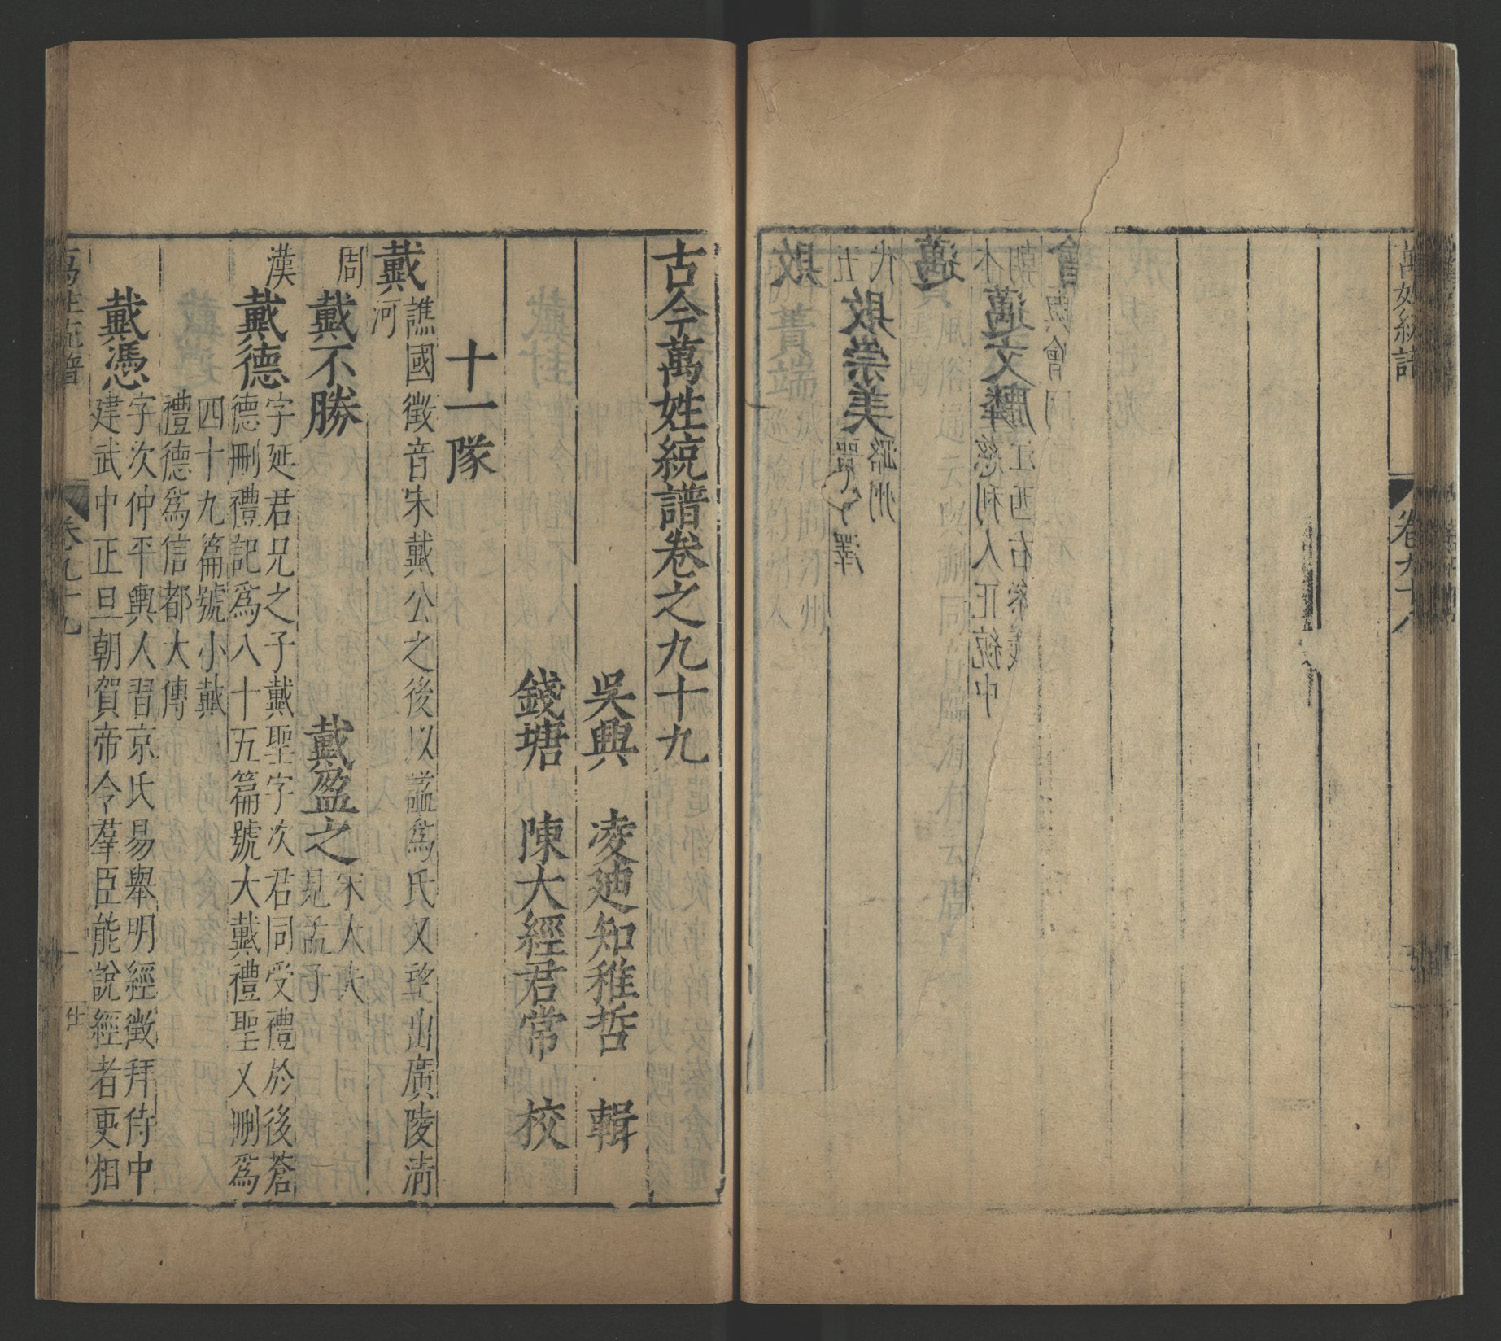 萬姓統譜 卷九十八
敗
五代 敗崇美
邁
本朝 邁文麟 慈利人正統中
江西右參議
古今萬姓統譜卷之九十九
吳興 凌迪知稚哲 輯
錢塘 陳大經君常 校
十一隊
戴 譙國徵音宋戴公之後以謚爲氏又望出廣陵清
河
周 戴不勝 戴盈之 宋大夫
見孟子
漢 戴德 字延君兄之子戴聖字次君同受禮於後蒼
德刪禮記爲八十五篇號大戴禮聖又刪爲
四十九篇號小戴
禮德爲信都大傅
戴憑 字次仲平輿人習京氏易舉明經徵拜侍中
建武中正旦朝賀帝令羣臣能說經者更相
萬姓統譜 卷九十九 一